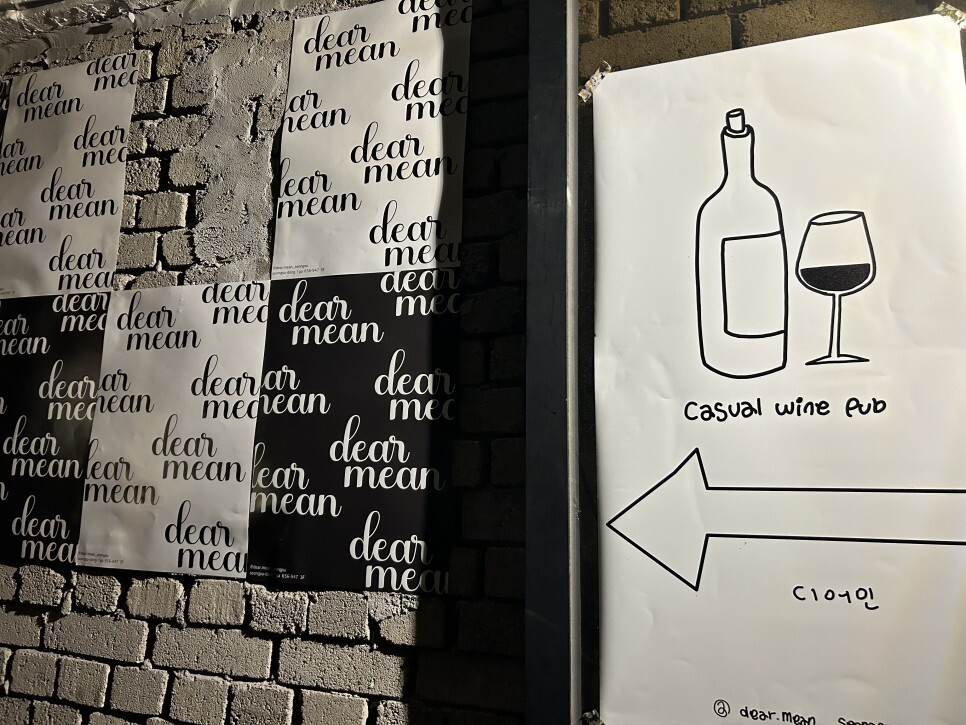 dear
mean
dear
mea
dear
mea
dear
mean
dear
mea
dear
mean
dear
mean
dear
mean
dear
mea
dear
mean
@dear.mean_seongsu
dear
mea
dear
mean
dear
mean
dear
mea
dear
mean
dear
mea
dear
mean
dear
mean
dear
mea
dear
mean
dear
mea
@dear.mean_seongsu
casual wine pub
디어민
@ dear.mean_